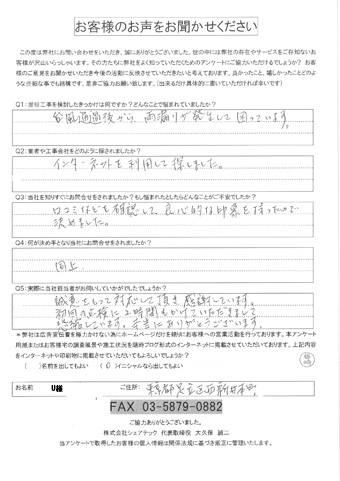 お客様のお声をお聞かせください
この度は弊社にお問い合わせをいただき、誠にありがとうございました。世の中には弊社の存在やサービスをご存知ないお
客様が沢山いらっしゃいます。その方たちに弊社をよく知っていただくためのアンケートにご協力いただけるでしょうか？お
客様のご意見をお聞かせいただき今後の活動に反映させていただきたいと考えております。良かったこと、嬉しかったことどのよ
うな些細な事でも結構です。是非ご協力お願い致します。（出来るだけ具体的に書いていただければ幸いです）
Q1：屋根工事を検討したきっかけは何ですか？どんなことで悩まれていましたか？
台風通過後から、雨漏りが発生して困っています。
Q2：業者や工事会社をどのように探されましたか？
インターネットを利用して探しました。
Q3：当社を知りすぐにお問合せをされましたか？もし悩まれたとしたらどんなことがご不安でしたか？
口コミなどを確認して、良心的な印象を持ったので
決めました。
Q4：何が決め手となり当社にお問合せをされましたか？
同上
Q5：実際に当社担当者がお伺いしていかがでしたでしょうか？
誠意をもって対応して頂き感謝しています。
初回の点検に2時間もかけていただきまして
恐縮しています。本当にありがとうございます。
＊弊社は広告宣伝費を極力かけない為にホームページだけを頼りにお客様への営業活動を行っております。本アンケート
用紙またはお客様宅の調査風景や施工状況を随時ブログ形式のインターネットに掲載させていただいております。上記内容
をインターネットや印刷物に掲載させていただいてもよろしいでしょうか？
（　）名前を出してもよい　（○）イニシャルなら出してもよい
お名前　U様　ご住所：東京都足立区西新井本町
FAX　03-5879-0882
株式会社シェアテック　代表取締役　大久保　誠二
当アンケートで取得したお客様の個人情報は関係法規に基づき厳正に管理いたします。